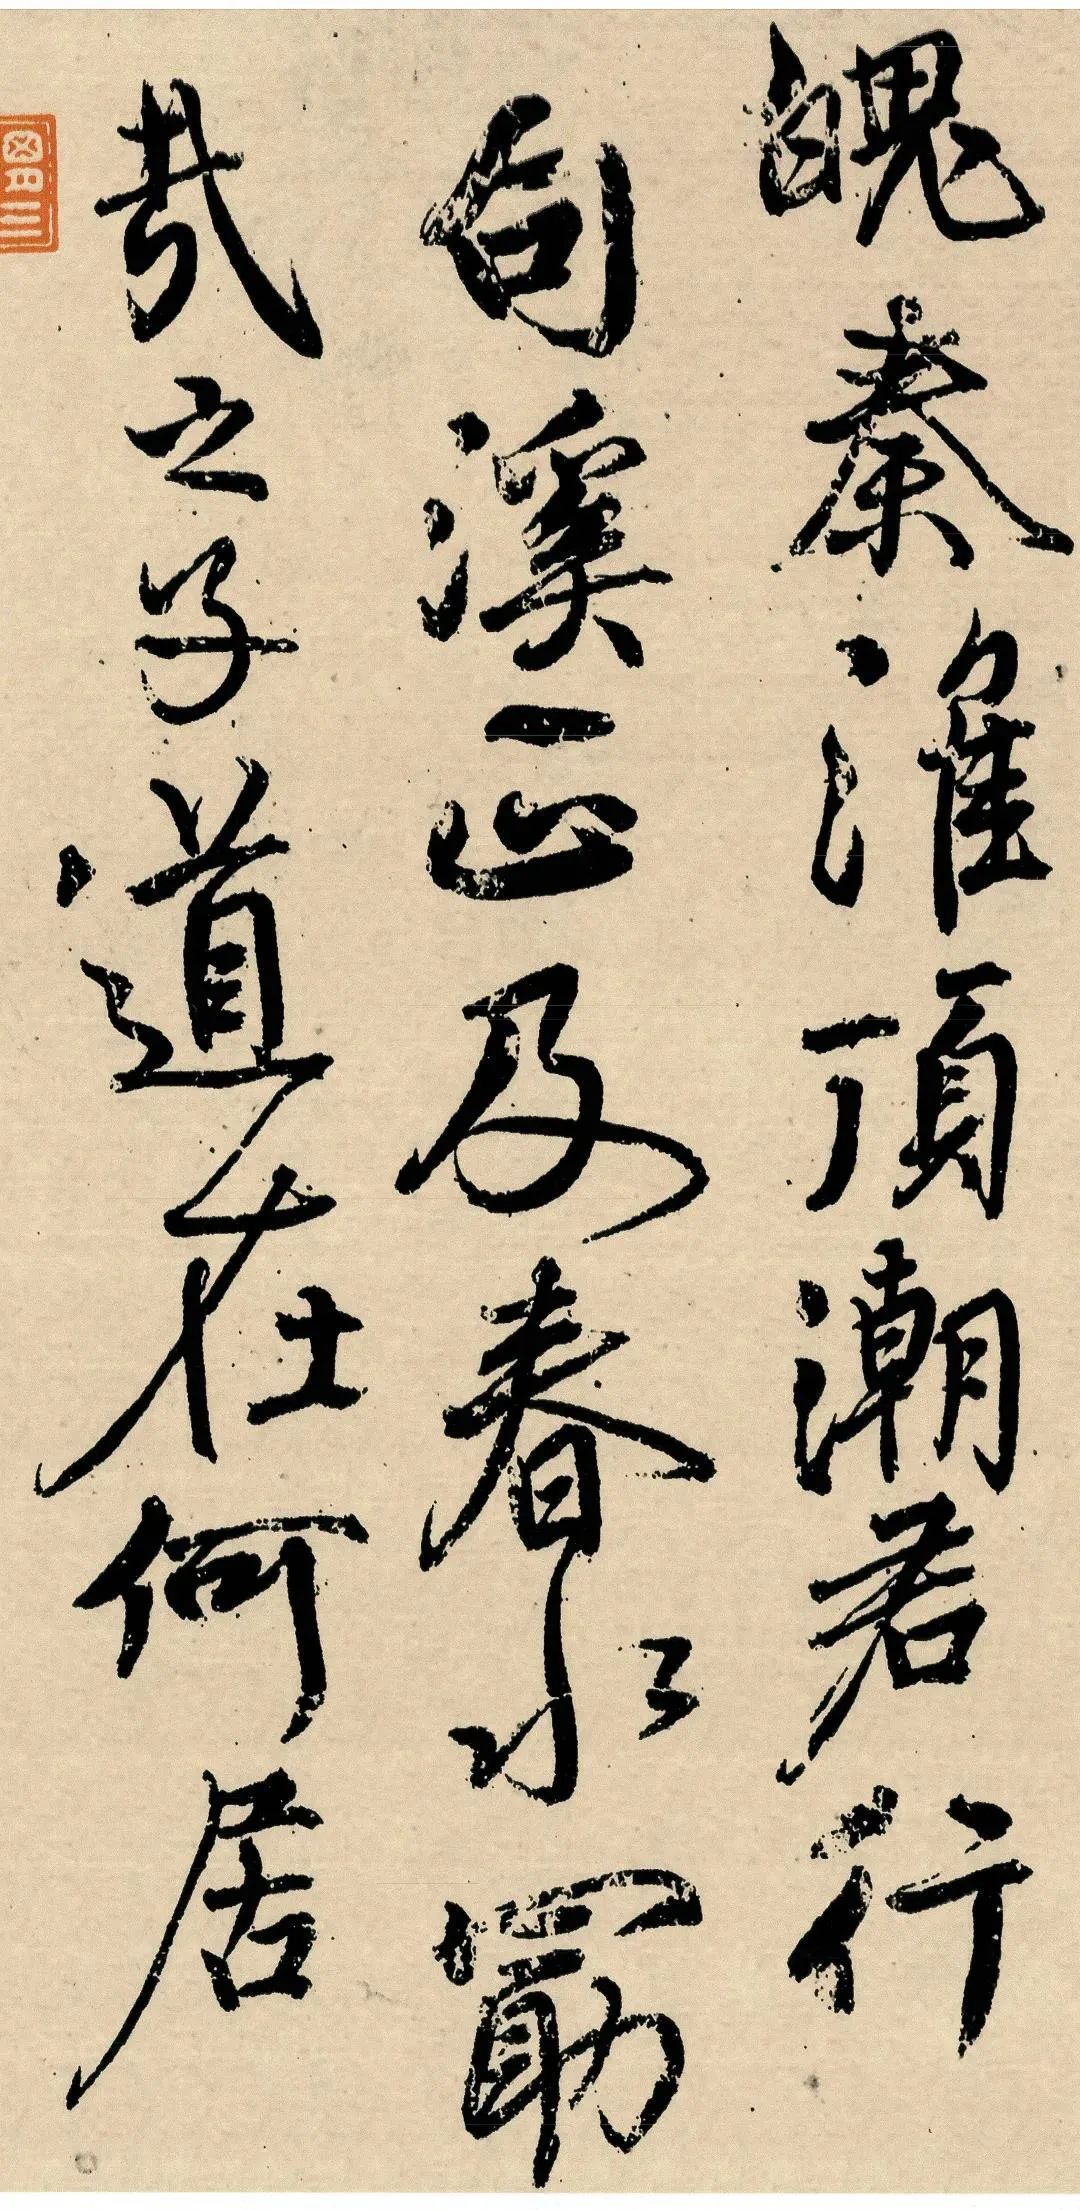 魄秦淮頂潮君行
句溪正及春水勗
哉之子道在何居